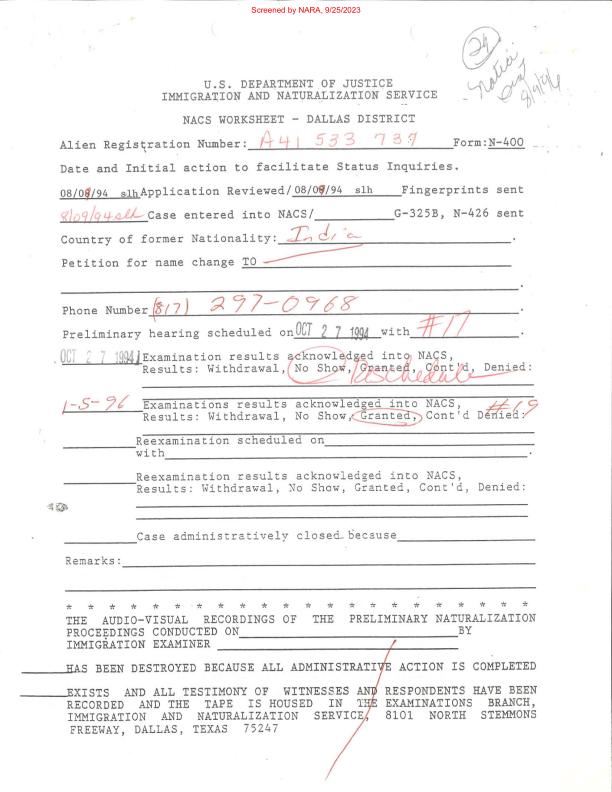 Screened by NARA, 9/25/2023
29
Notice
Sent
8/9/96
U.S. DEPARTMENT OF JUSTICE
IMMIGRATION AND NATURALIZATION SERVICE
NACS WORKSHEET - DALLAS DISTRICT
Alien Registration Number: A41 533 737 Form: N-400
Date and Initial action to facilitate Status Inquiries.
08/08/94 slh Application Reviewed/ 08/08/94 slh Fingerprints sent
8/09/94 slh Case entered into NACS/ G-325B, N-426 sent
Country of former Nationality: India.
Petition for name change TO
.
Phone Number (817) 297-0968
Preliminary hearing scheduled on OCT 27 1994 with #17.
OCT 27 1994 Examination results acknowledged into NACS,
Results: Withdrawal, No Show, Granted, Cont'd, Denied:
Reschedule
1-5-96 Examinations results acknowledged into NACS, #69
Results: Withdrawal, No Show, Granted, Cont'd Denied:
Reexamination scheduled on
with.
Reexamination results acknowledged into NACS,
Results: Withdrawal, No Show, Granted, Cont'd, Denied:
Case administratively closed because
Remarks:
* * * * * * * * * * * * * * * * * * *
THE AUDIO-VISUAL RECORDINGS OF THE PRELIMINARY NATURALIZATION
PROCEEDINGS CONDUCTED ON BY
IMMIGRATION EXAMINER
HAS BEEN DESTROYED BECAUSE ALL ADMINISTRATIVE ACTION IS COMPLETED
EXISTS AND ALL TESTIMONY OF WITNESSES AND RESPONDENTS HAVE BEEN
RECORDED AND THE TAPE IS HOUSED IN THE EXAMINATIONS BRANCH,
IMMIGRATION AND NATURALIZATION SERVICE, 8101 NORTH STEMMONS
FREEWAY, DALLAS, TEXAS 75247